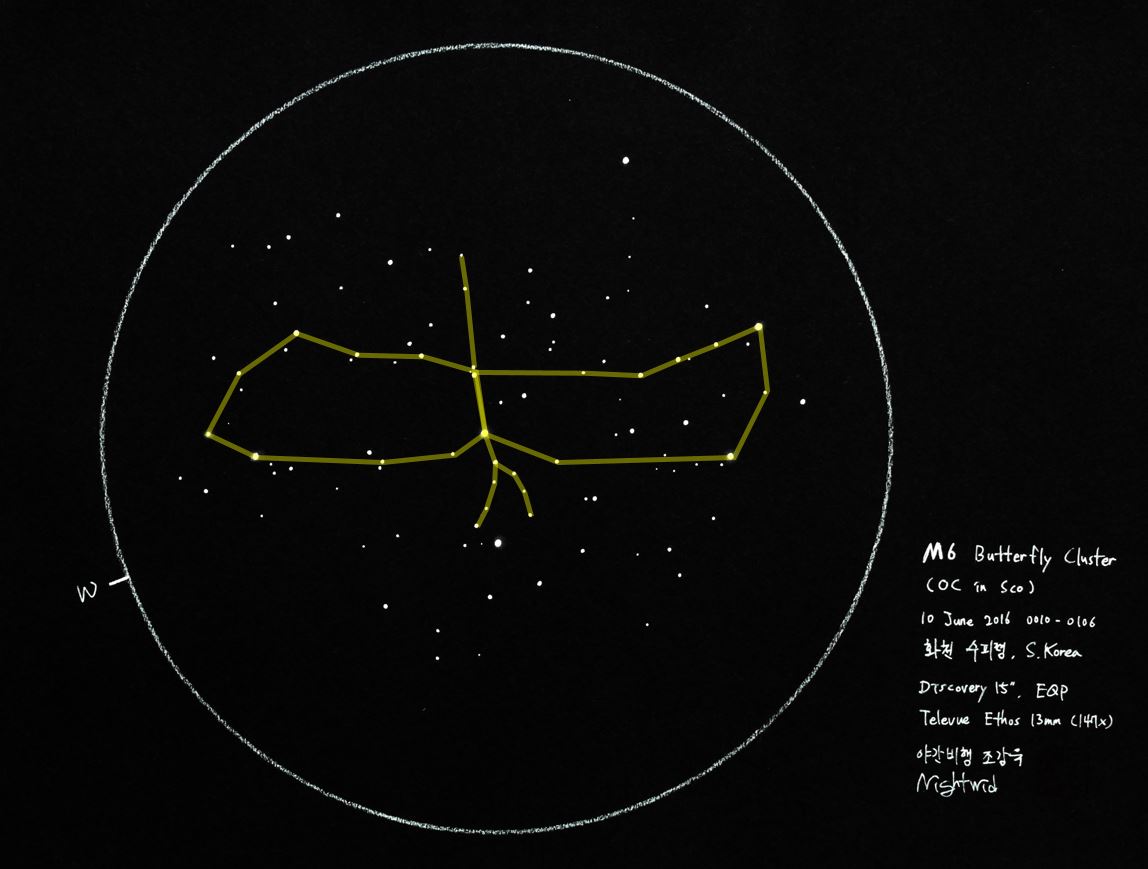 W
M6 Butterfly Cluster
(OC in Sco)
10 June 2016 0010-0106
화천 수피령, S.Korea
Discovery 15", EQP
Televue Ethos 13mm (147x)
야간비행 조강욱
Nightwid